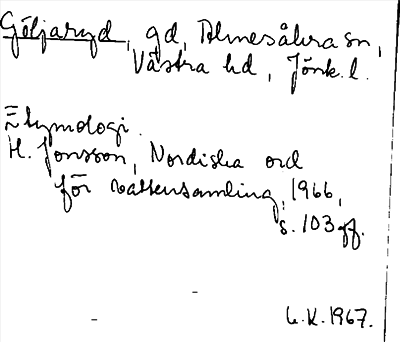 Göljaryd, gd, Almesåkra sn,
Västra hd, Jönk. l.
Etymologi.
H. Jonsson, Nordiska ord
för vattensamling, 1966,
s. 103 ff.
L.K. 1967.